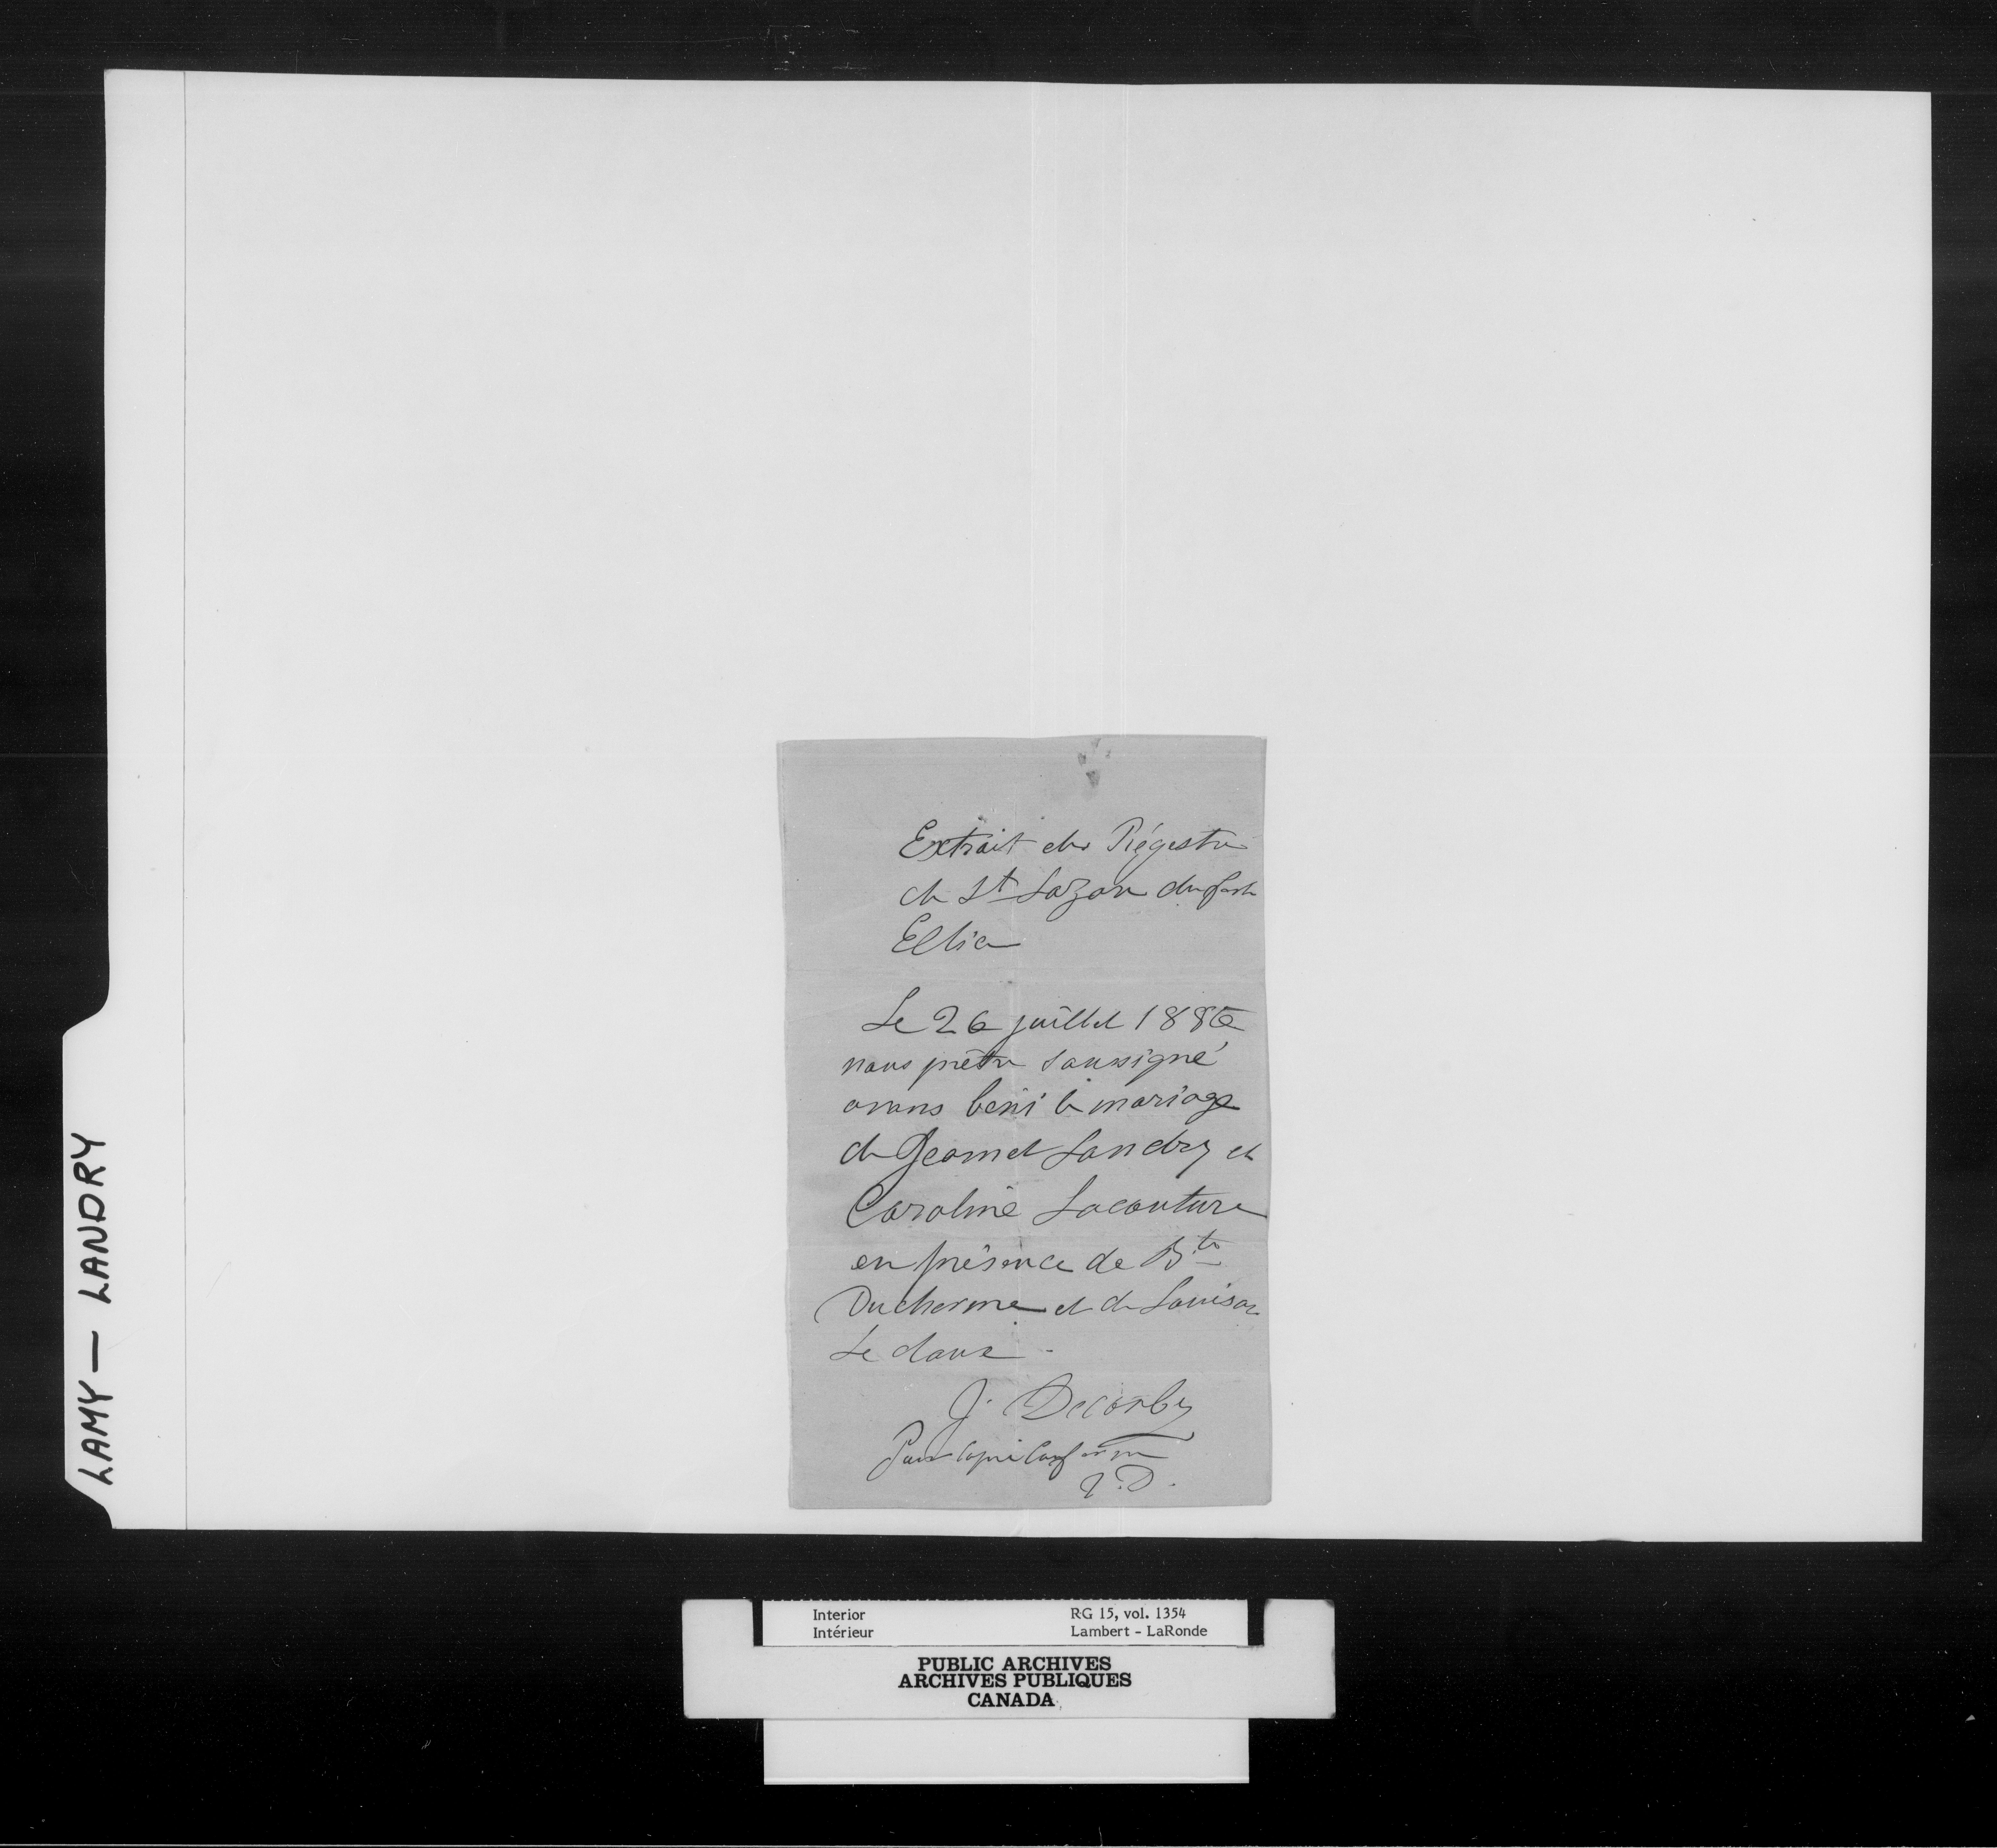 LAMY — LANDRY
Extrait des Régestre
de St Lazare du fort
Ellice
Le 26 juillet 1886
nous prêtre soussigné
avons béni le mariage
de Landry et
Caroline Lacouture
en présence de Bte
Ducharme et de Louison
Ledoux
J. Decorby
Pour copie conforme
J. D.
Interior
Intérieur
RG 15, vol. 1354
Lambert - LaRonde
PUBLIC ARCHIVES
ARCHIVES PUBLIQUES
CANADA